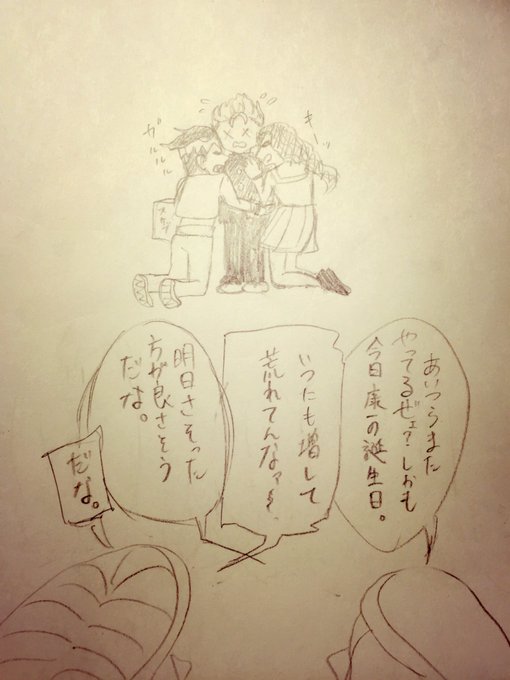 キーッ
ガルルルル
あいつらまた
やってるぜェ?しかも
今日康一の誕生日。
いつにも増して
荒れてんなァ
明日さそった
方が良さそう
だな。
だな。